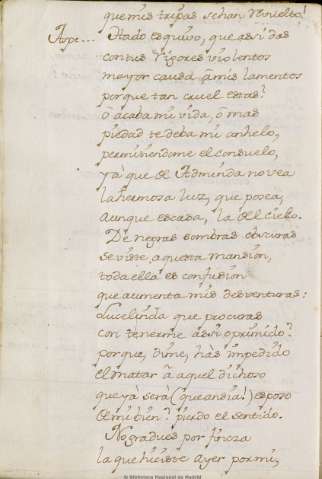 que mis tripas se han rebuelto!
Hado esquivo, que assi das
con tus rigores violentos
mayor causa à mis lamentos
porque tan cruel estas?
ò acaba mi vida, ò mas
piedad te deba mi anhelo,
permitiendome el consuelo,
yà que de Adminda no vea
la hermosa luz, que posea,
aunque escasa, la del cielo.
De negras sombras obscuras
se viste, aquesta mansion,
toda ella es confusion
que aumenta mis desventuras:
Lucelinda que procuras
con tenerme assi oprimido?
porque, dime, hàs impedido
el matar à aquel dichoso
que yà serà (que ansia!) esposo
de mi bien? pierdo el sentido.
No gradues por fineza
la que hiciste ayer por mi,
© Biblioteca Nacional de Madrid